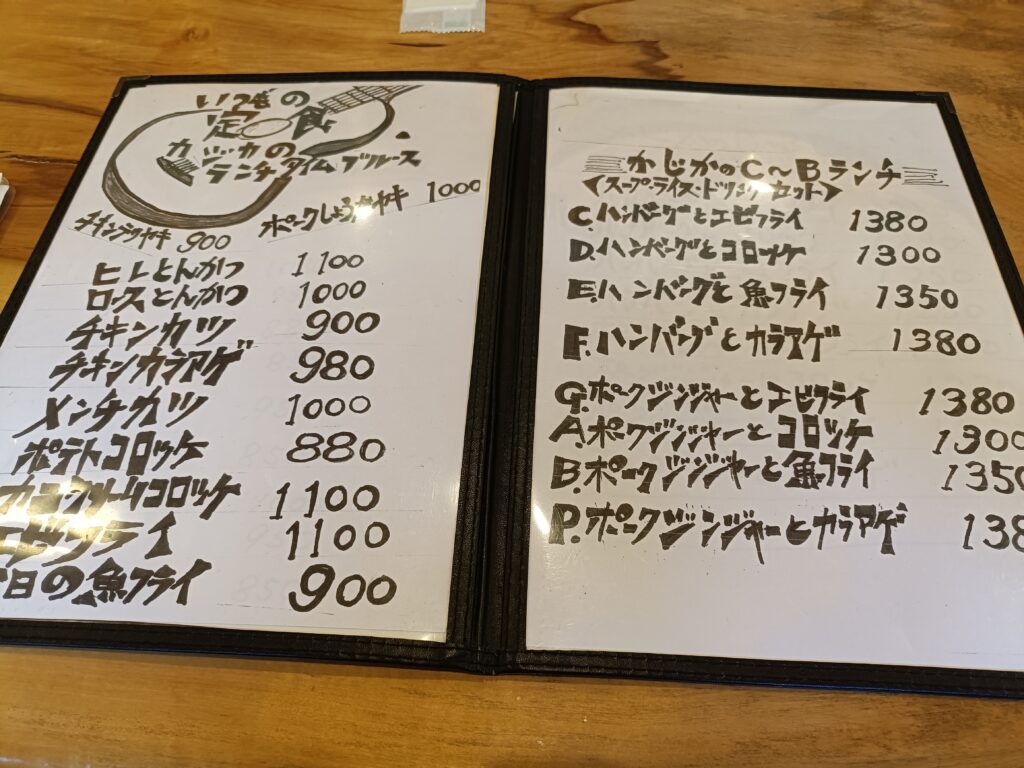 いつもの
定食
カジカの
ランチタイムブルース
チキンテリヤキ 900
ポークしょうがヤキ 1000
ヒレとんかつ 1100
ロースとんかつ 1000
チキンカツ 900
チキンカラアゲ 980
メンチカツ 1000
ポテトコロッケ 880
カニクリームコロッケ 1100
エビフライ 1100
日の魚フライ 900
かじかのC〜Bランチ
<スープ・ライス・ドリンクセット>
C.ハンバーグとエビフライ 1380
D.ハンバーグとコロッケ 1300
E.ハンバーグと魚フライ 1350
F.ハンバーグとカラアゲ 1380
G.ポークジンジャーとエビフライ 1380
A.ポークジンジャーとコロッケ 1300
B.ポークジンジャーと魚フライ 1350
P.ポークジンジャーとカラアゲ 138